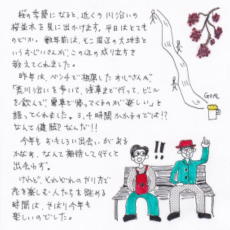 桜の季節になると、近くの川沿いの
桜並木を見に出かけます。平日はとても
のどか。数年前は、そこ
というおじいさんが、この辺の成り立ちを
教えてくれました。
昨年は、ベンチで相席したおじさんが、
「荒川沿いを歩いて、浅草まで行って、ビール
を飲んで、電車で帰ってくるのが楽しい」と
語ってくれました。3、4時間かかるのでは!?
なんて健脚?なんだ!!
今年もおもしろい出会いがある
かなぁ、なんて期待して行くと
出会わず。
けれど、それぞれのやり方で
花を楽しむ人たちを眺める
時間は、やはり今年も
楽しいのでした。
GOAL